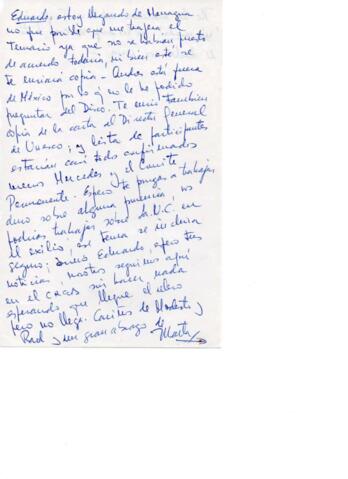 Eduardo: estoy llegando de Managua
no que pedí que me trajera el
Temario ya que no se habían puesto
de acuerdo todavía, ni bien esté se
te enviará copia - Andrés está fuera
de México por lo q' no le he podido
preguntar del Disco. Te envío también
copia de la carta al Director General
de Unesco; y lista de participantes
estarían casi todos confirmados
menos Mercedes y el Comité
Permanente. Espero te pongas a trabajar
duro sobre alguna ponencia, vos
podrías trabajar sobre la U.C. en
el exilio, ese tema se incluirá
seguro; bueno Eduardo, espero tus
noticias, nosotros seguimos aquí
en el sin hacer nada
esperando que llegue el
pero no llega. Cariños de Modesto y
Raúl y un gran abrazo de
Marta